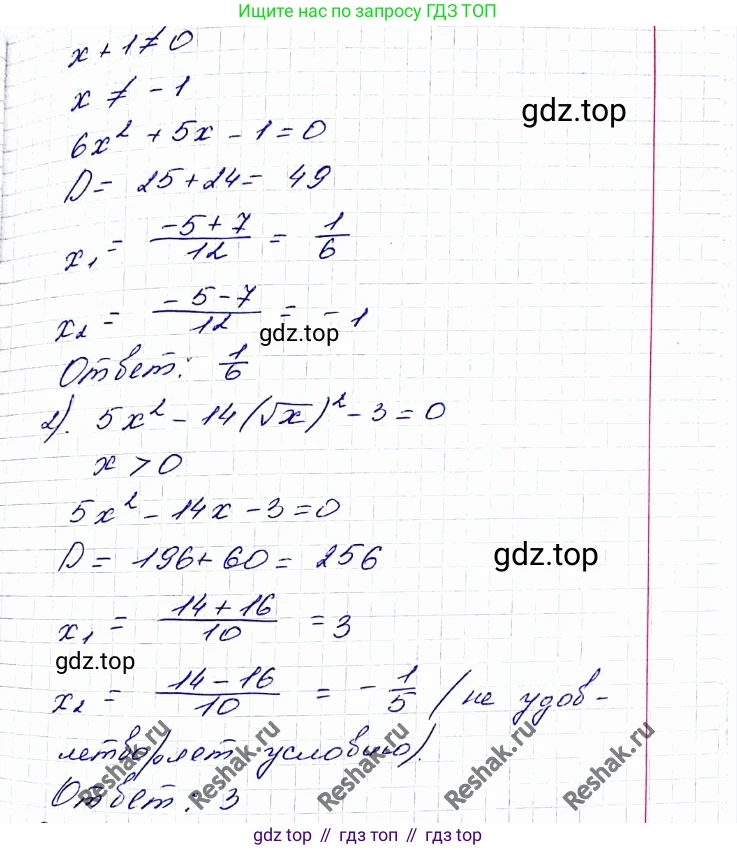 Ищите нас по запросу ГДЗ ТОП
x + 1 ≠ 0
x ≠ - 1
gdz.top
6x² + 5x - 1 = 0
D = 25 + 24 = 49
x₁ = (-5 + 7)/12 = 1/6
x₂ = (-5 - 7)/12 = - 1
gdz.top
Ответ: 1/6
2). 5x² - 14(√x)² - 3 = 0
x > 0
5x² - 14x - 3 = 0
D = 196 + 60 = 256
gdz.top
x₁ = (14 + 16)/10 = 3
gdz.top
x₂ = (14 - 16)/10 = - 1/5 (не удов-
летворяет условию).
Ответ: 3
Reshak.ru Reshak.ru Reshak.ru Reshak.ru Reshak.ru
gdz top // гдз топ // gdz top